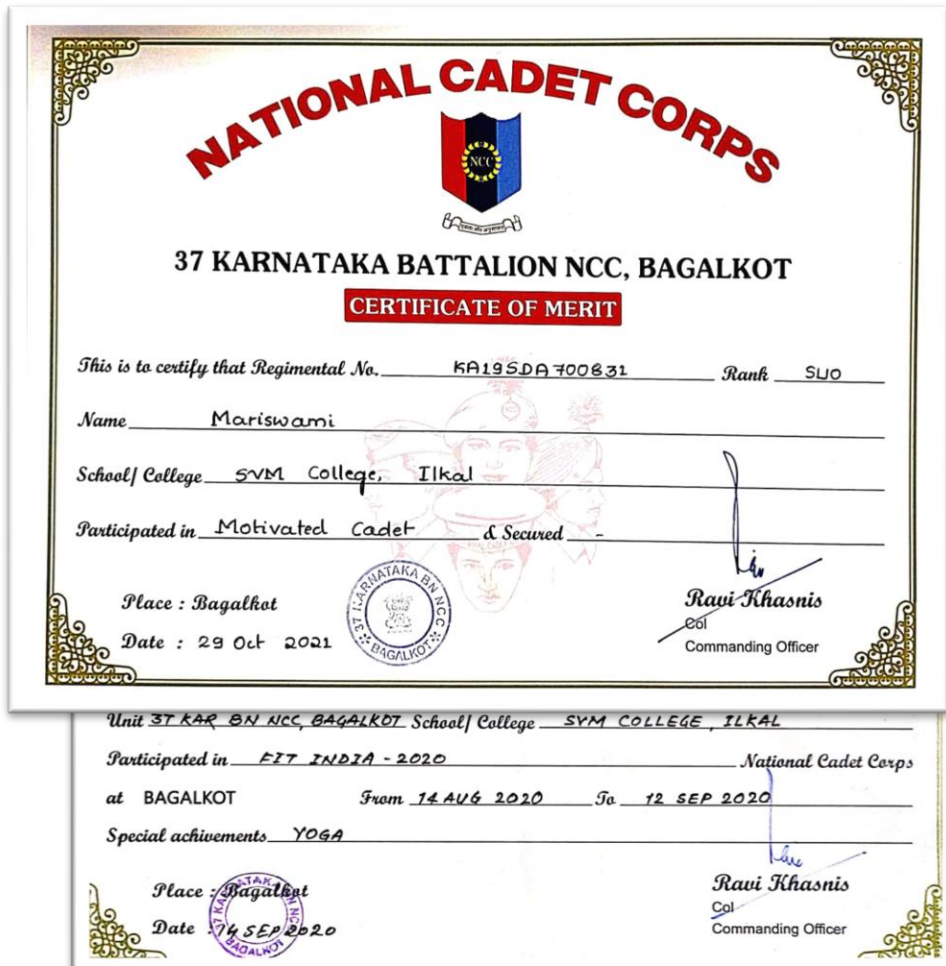 NATIONAL CADET CORPS
NCC
37 KARNATAKA BATTALION NCC, BAGALKOT
CERTIFICATE OF MERIT
This is to certify that Regimental No. KA19SDA700831 Rank SUO
Name Mariswami
School/ College SVM College, Ilkal
Participated in Motivated Cadet & Secured -
37 KARNATAKA BN NCC
BAGALKOT
Place : Bagalkot
Date : 29 Oct 2021
Ravi Khasnis
Col
Commanding Officer
Unit 37 KAR BN NCC, BAGALKOT School/ College SVM COLLEGE, ILKAL
Participated in FIT INDIA - 2020 National Cadet Corps
at BAGALKOT From 14 AUG 2020 To 12 SEP 2020
Special achivements YOGA
Place : Bagalkot
Date : 14 SEP 2020
37 KARNATAKA BN NCC
BAGALKOT
Ravi Khasnis
Col
Commanding Officer